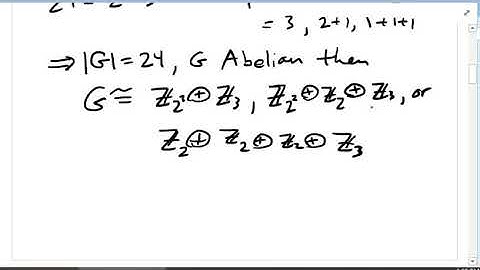 = 3, 2+1, 1+1+1
⇒ |G|=24, G Abelian then
G ≅ ℤ₂³ ⊕ ℤ₃, ℤ₂² ⊕ ℤ₂ ⊕ ℤ₃, or
ℤ₂ ⊕ ℤ₂ ⊕ ℤ₂ ⊕ ℤ₃